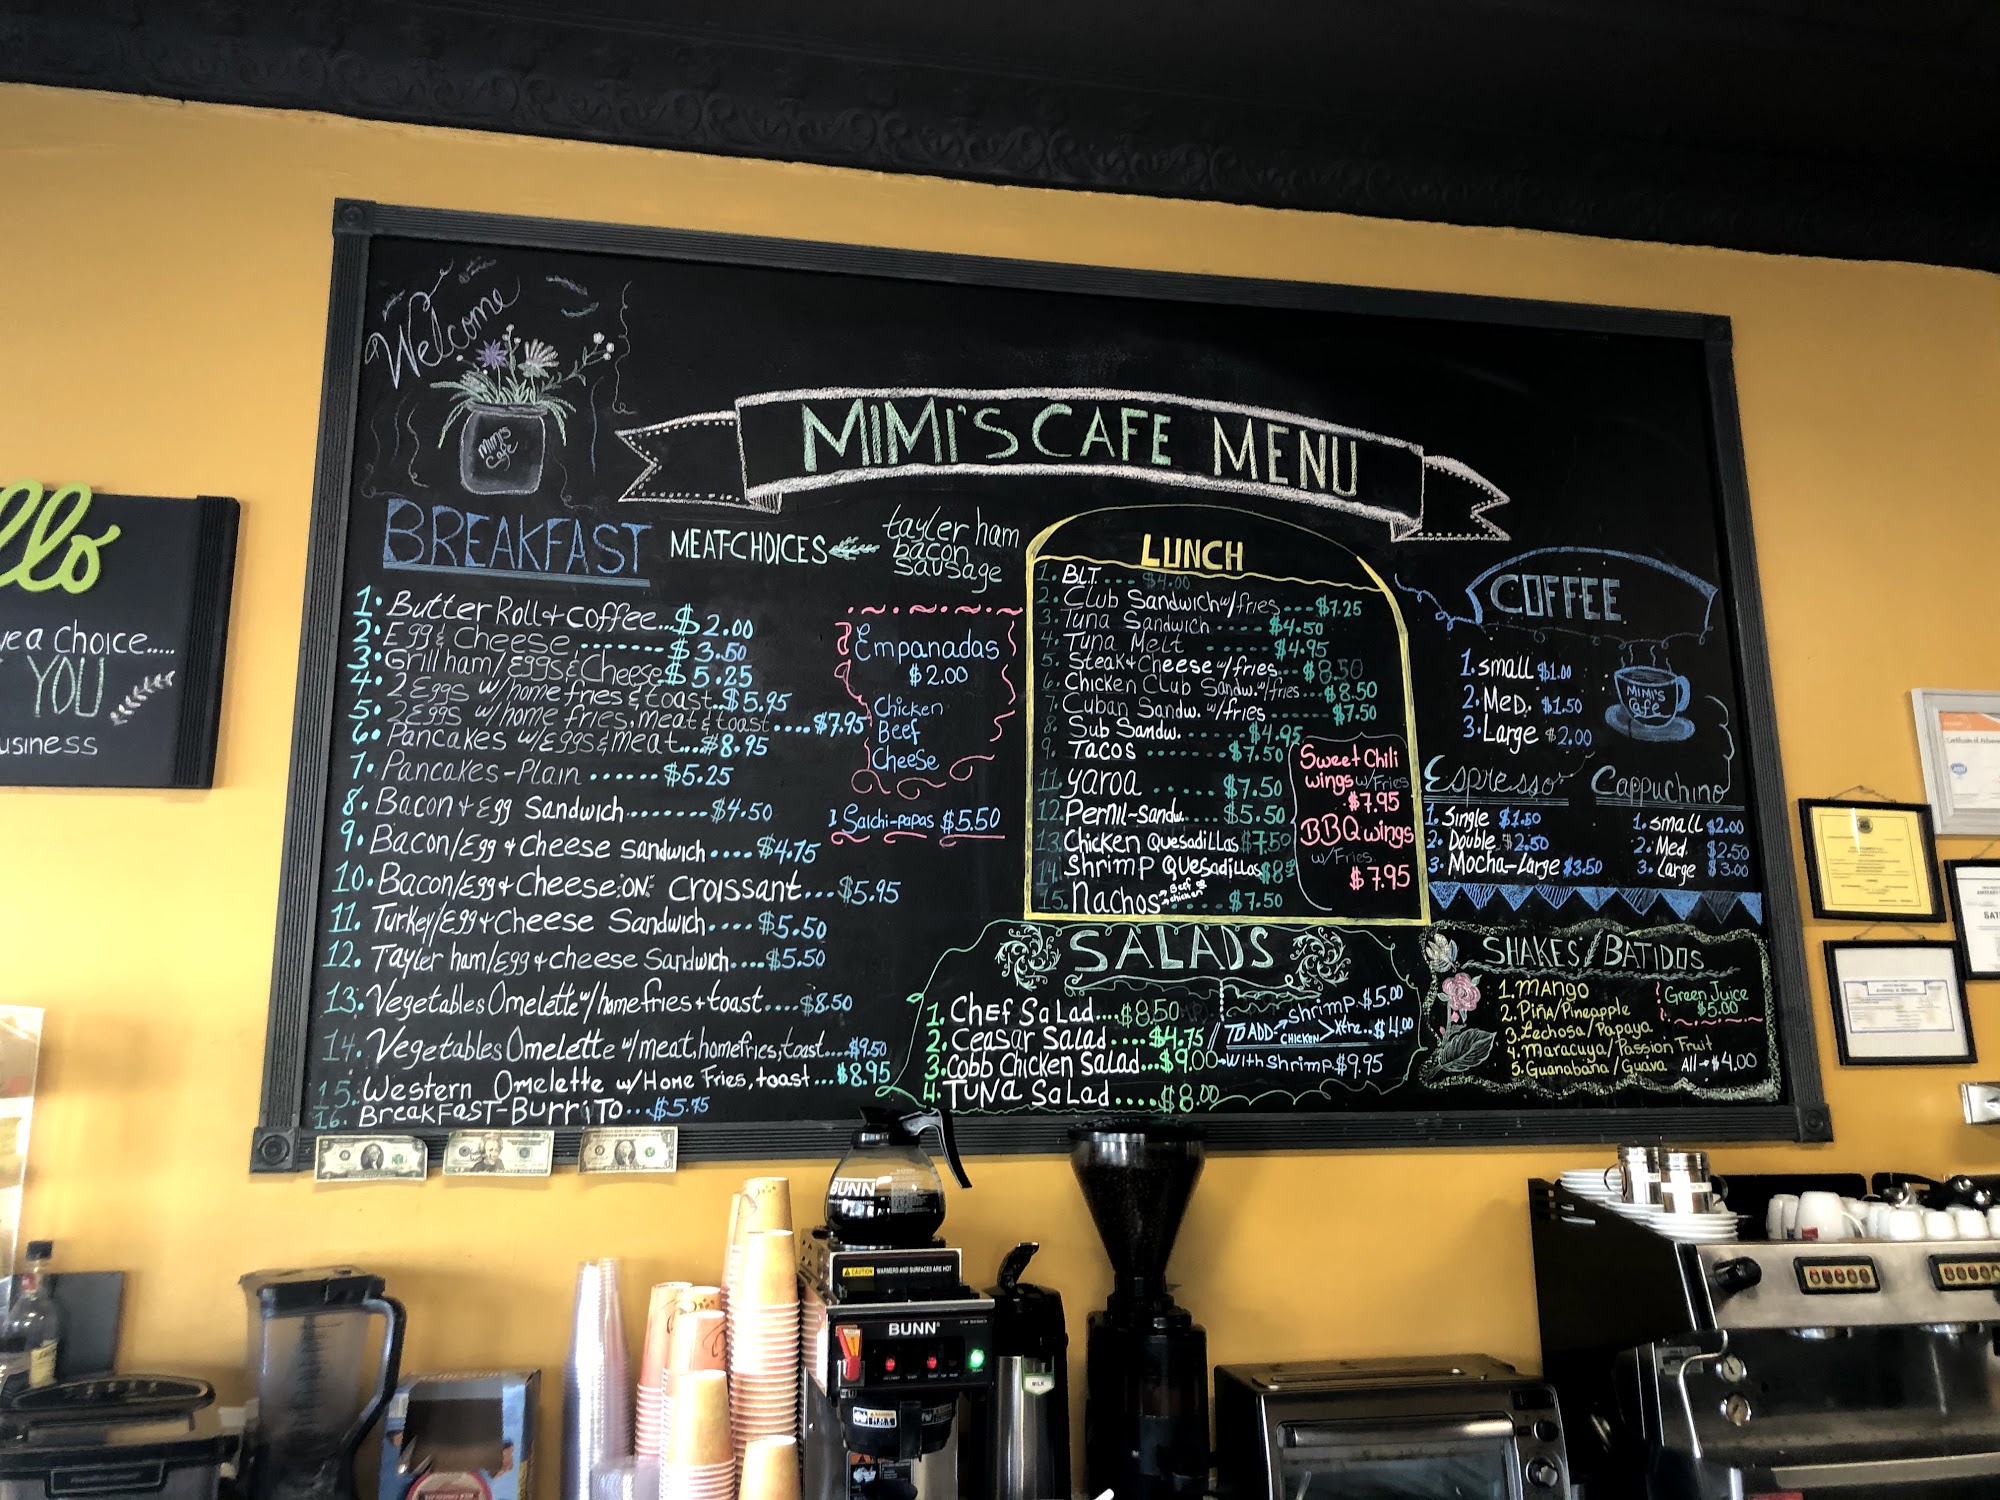 Welcome
Mimi's
Cafe
MIMI'S CAFE MENU
BREAKFAST
MEAT-CHOICES
tayler ham
bacon
sausage
1. Butter Roll + coffee...$2.00
2. Egg & Cheese ........$3.50
3. Grill ham/Eggs & Cheese $5.25
4. 2 Eggs w/home fries & toast..$5.95
5. 2 Eggs w/home fries, meat & toast....$7.95
6. Pancakes w/Eggs & meat...$8.95
7. Pancakes-Plain ......$5.25
8. Bacon + Egg Sandwich........$4.50
9. Bacon/Egg + Cheese Sandwich....$4.75
10. Bacon/Egg + Cheese :ON: Croissant...$5.95
11. Turkey/Egg + Cheese Sandwich....$5.50
12. Tayler ham/Egg + cheese Sandwich....$5.50
13. Vegetables Omelette w/homefries + toast....$8.50
14. Vegetables Omelette w/meat, homefries, toast....$9.50
15. Western Omelette w/Home Fries, toast...$8.95
16. BreakFast-Burrito...$5.75
Empanadas
$2.00
Chicken
Beef
Cheese
1 Salchi-papas $5.50
LUNCH
1. BLT.... $4.00
2. Club Sandwich w/fries...$7.25
3. Tuna Sandwich ....$4.50
4. Tuna Melt .....$4.95
5. Steak + Cheese w/fries...$8.50
6. Chicken Club Sandw. w/fries...$8.50
7. Cuban Sandw. w/fries ....$7.50
8. Sub Sandw. ......$4.95
9. Tacos ......$7.50
11. Yaroa ......$7.50
12. Pernil-Sandw....$5.50
13. Chicken Quesadillas $7.50
14. Shrimp Quesadillas $8
15. Nachos Beef chicken $7.50
Sweet Chili
wings w/Fries
$7.95
BBQ wings
w/Fries.
$7.95
SALADS
1. Chef Salad....$8.50
2. Ceasar Salad....$4.75
3. Cobb Chicken Salad...$9.00 - with Shrimp. $9.95
4. Tuna Salad ....$8.00
TO ADD
shrimp. $5.00
chicken > Xtra...$4.00
COFFEE
1. small $1.00
2. Med. $1.50
3. Large $2.00
MIMI'S
Cafe
Espresso
1. Single $1.50
2. Double $2.50
3. Mocha-Large $3.50
Cappuchino
1. small $2.00
2. Med. $2.50
3. Large $3.00
SHAKES/BATIDOS
1. Mango
2. Piña/Pineapple
3. Lechosa/Papaya
4. Maracuya/Passion Fruit
5. Guanabana/Guava All → $4.00
Green Juice
$5.00
llo
ve a choice.....
YOU
usiness
BUNN
CAUTION WARMERS AND SURFACES ARE HOT
BUNN
MILK